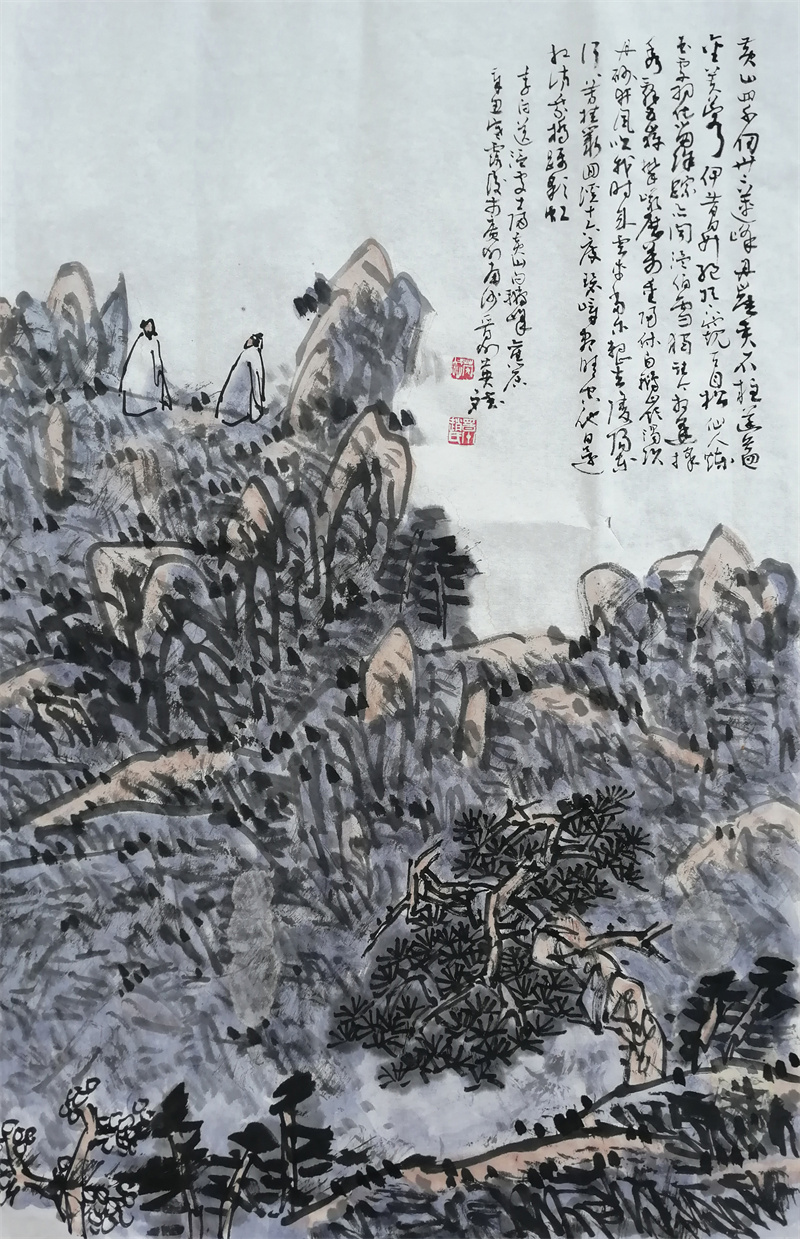 黄山四千仞卅二莲峰丹崖夹石柱菡萏
金芙蓉伊昔升绝顶下窥天目松仙人炼
玉处羽化留馀踪亦闻温伯雪独往今相逢採
秀辞五岳攀岩历万重归休白鹅岭渴饮
丹砂井风吹我时来云车尔当整去去陵阳东
行行芳桂丛回溪十六度碧嶂尽晴空他日还
相访乘桥蹑彩虹
李白送温处士归黄山白鹅峰旧居
辛丑寒露后